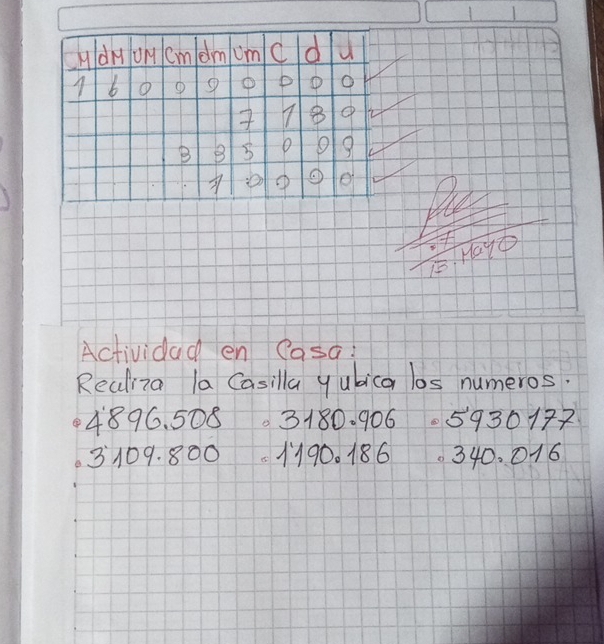 CM dM UM Cm dm Um C d u
1 6 0 0 0 0 0 0 0
7 1 8 0
8 8 5 0 0 9
1 0 0 0 0
15. Mayo
Actividad en Casa:
Realiza la Casilla y ubica los numeros.
4'896.508 3'180.906 5'930177
3'109.800 1'190.186 340.016